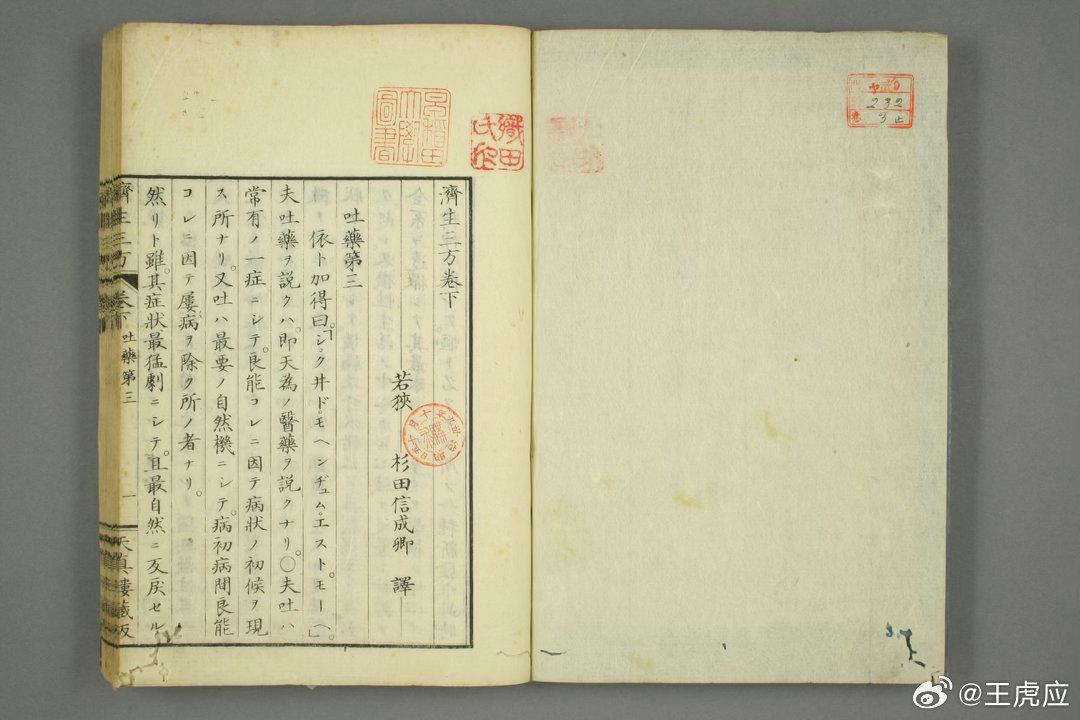 濟生三方卷下
若狹 杉田信成卿 譯
吐藥第三
依卜加得曰。「シク井ドモヘンヂュム。エスト。モーヘ。」
夫吐藥ヲ說クハ。卽天為ノ醫藥ヲ說クナリ。〇夫吐ハ
常有ノ一症ニシテ。良能コレニ因テ病狀ノ初候ヲ現
ス所ナリ。又吐ハ最要ノ自然機ニシテ。病初病間良能
コレニ因テ屢病ヲ除ク所ノ者ナリ。
然リト雖。其症狀最猛劇ニシテ。且最自然ニ反戾セル
濟生三方 卷下 吐藥第三 一 天真樓藏版
早稻田大學圖書
織田氏
232
3止
@王虎应